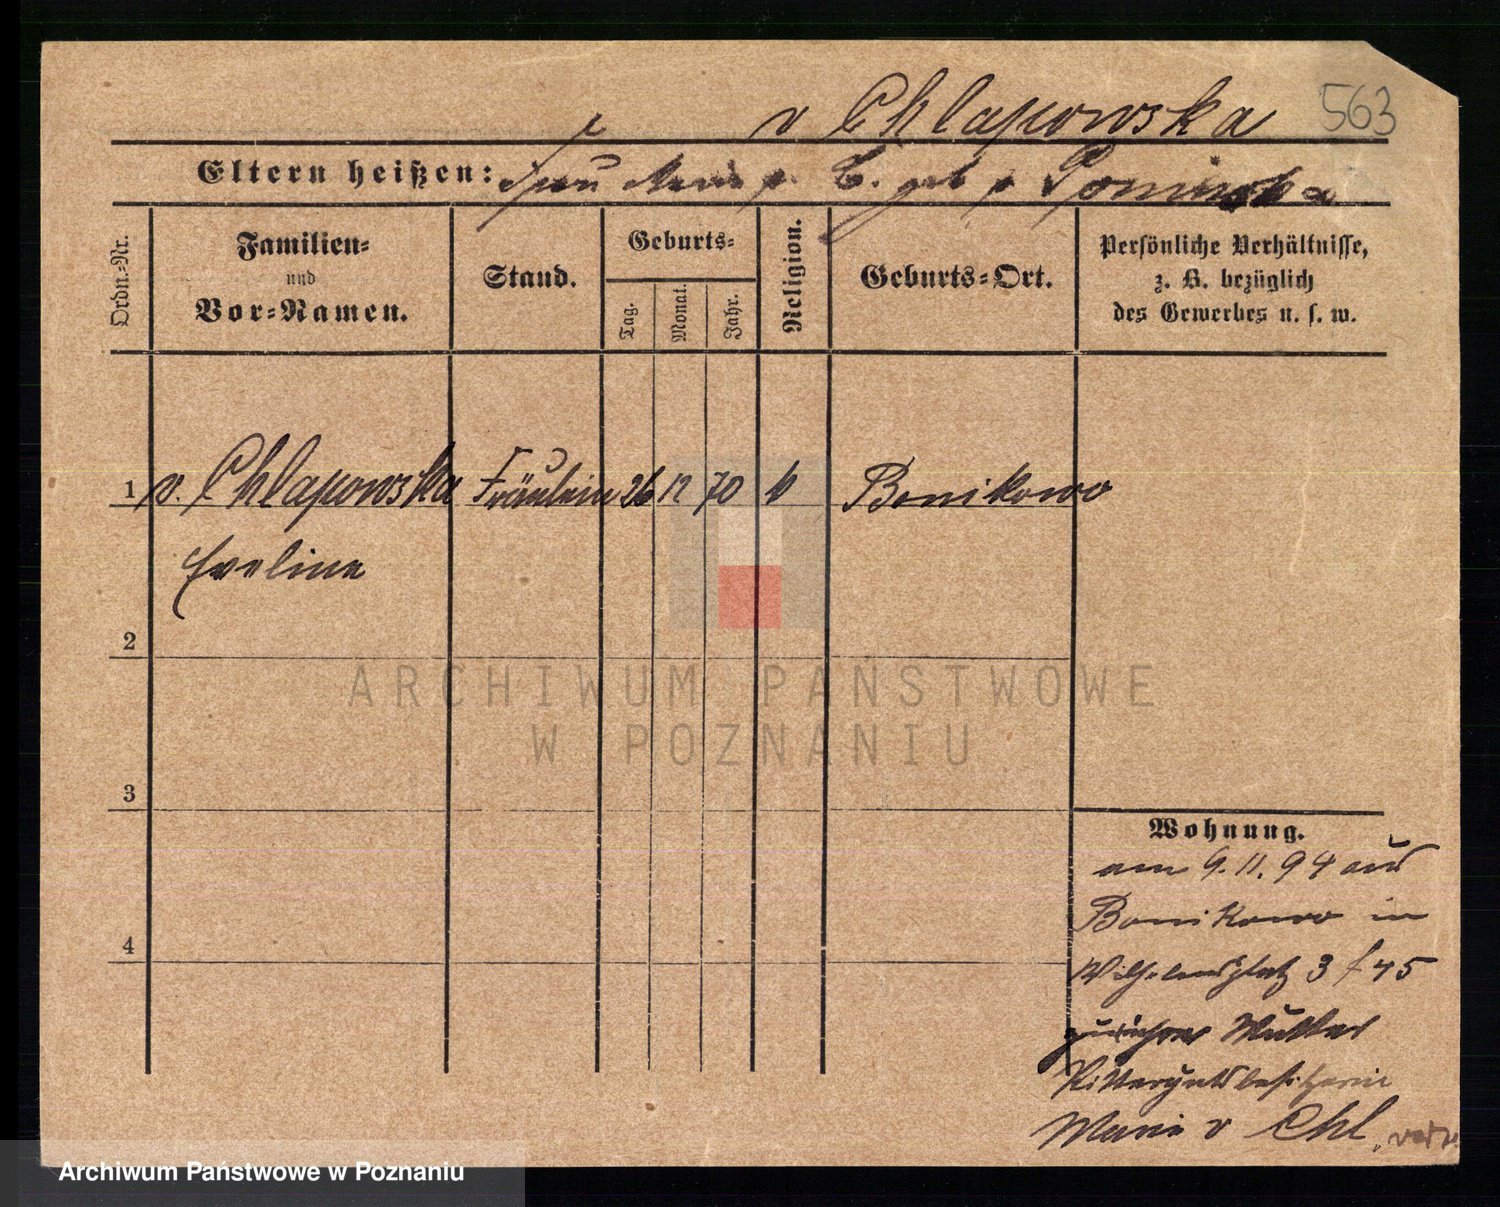 v Chlapowska 563
Eltern heißen: Frau Marie v. C. geb v Pominska
Ordn.=Nr.
Familien=
und
Vor=Namen.
Stand.
Geburts=
Tag.
Monat.
Jahr.
Religion.
Geburts=Ort.
Persönliche Verhältnisse,
z. B. bezüglich
des Gewerbes u. s. w.
1 v. Chlapowska Fräulein 26 12 70 k Bonikowo
Eveline
2
3
4
Wohnung.
am 9.11.94 aus
Bonikowo in
Wilhelmsplatz 3 f 45
zu ihrer Mutter
Rittergutsbesitzerin
Marie v Chl
ARCHIWUM PAŃSTWOWE
W POZNANIU
Archiwum Państwowe w Poznaniu